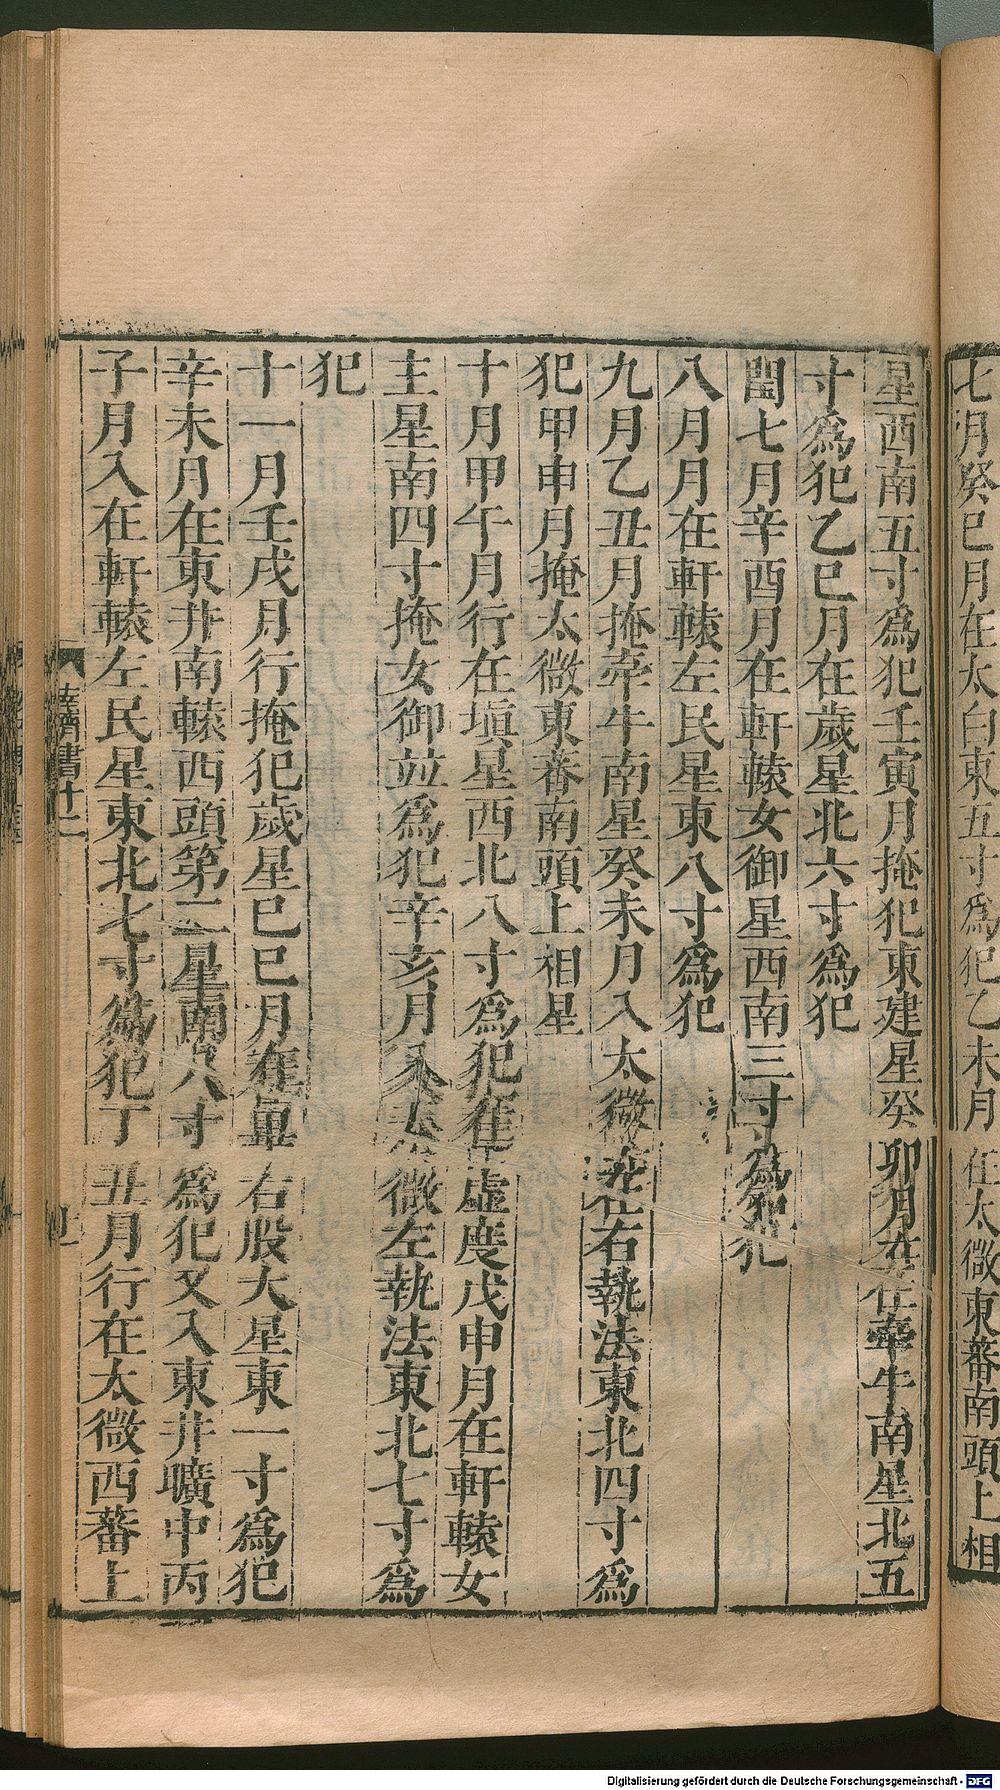 七月癸巳月在太白東五寸爲犯乙未月在太微東蕃南頭上相
星西南五寸爲犯壬寅月掩犯東建星癸卯月在牽牛南星北五
寸爲犯乙巳月在歲星北六寸爲犯
閏七月辛酉月在軒轅女御星西南三寸爲犯
八月月在軒轅左民星東八寸爲犯
九月乙丑月掩牽牛南星癸未月入太微在右執法東北四寸爲
犯甲申月掩太微東蕃南頭上相星
十月甲午月行在塡星西北八寸爲犯在虛度戊申月在軒轅女
主星南四寸掩女御並爲犯辛亥月入太微左執法東北七寸爲
犯
十一月壬戌月行掩犯歲星己巳月在畢右股大星東一寸爲犯
辛未月在東井南轅西頭第二星南八寸爲犯又入東井曠中丙
子月入在軒轅左民星東北七寸爲犯丁丑月行在太微西蕃上
齊書十二
Digitalisierung gefördert durch die Deutsche Forschungsgemeinschaft - DFG